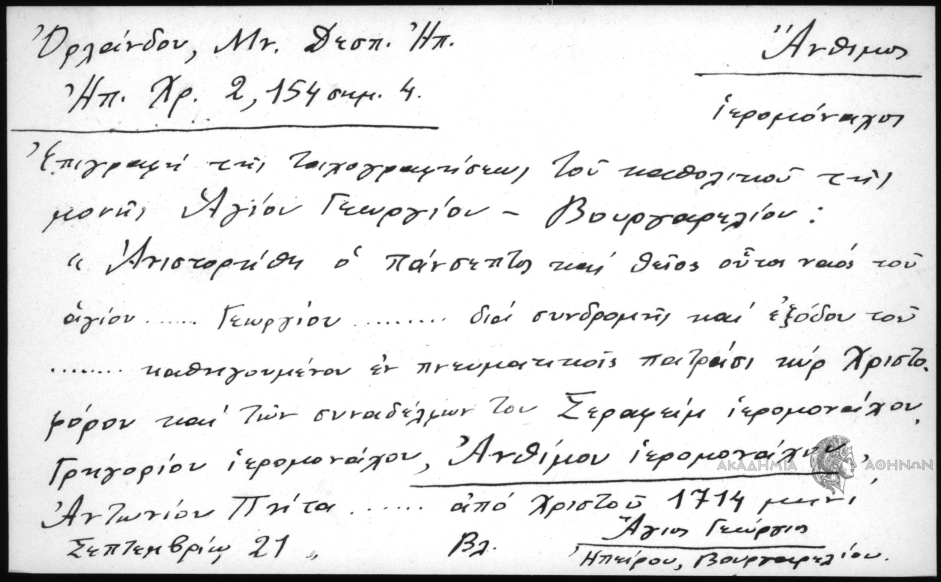 Ὀρλάνδου, Μν. Δεσπ. Ἠπ.
Ἄνθιμος
Ἠπ. Χρ. 2, 154 σημ. 4.
ἱερομόναχος
Ἐπιγραφή τῆς τοιχογραφήσεως τοῦ καθολικοῦ τῆς
μονῆς Ἁγίου Γεωργίου – Βουργαρελίου :
" Ἀνιστορήθη ὁ πάνσεπτος καί θεῖος οὗτος ναός τοῦ
ἁγίου ...... Γεωργίου ......... διά συνδρομῆς καί ἐξόδου τοῦ
........ καθηγουμένου ἐν πνευματικοῖς πατράσι κύρ Χριστο-
φόρου καί τῶν συναδέλφων του Σεραφείμ ἱερομονάχου,
Γρηγορίου ἱερομονάχου, Ἀνθίμου ἱερομονάχου,
ΑΚΑΔΗΜΙΑ ΑΘΗΝΩΝ
Ἀντωνίου Πήτα ...... ἀπό Χριστοῦ 1714 μηνί
Σεπτεμβρίῳ 21 "
Βλ. Ἅγιος Γεώργιος
Ἠπείρου, Βουργαρελίου.